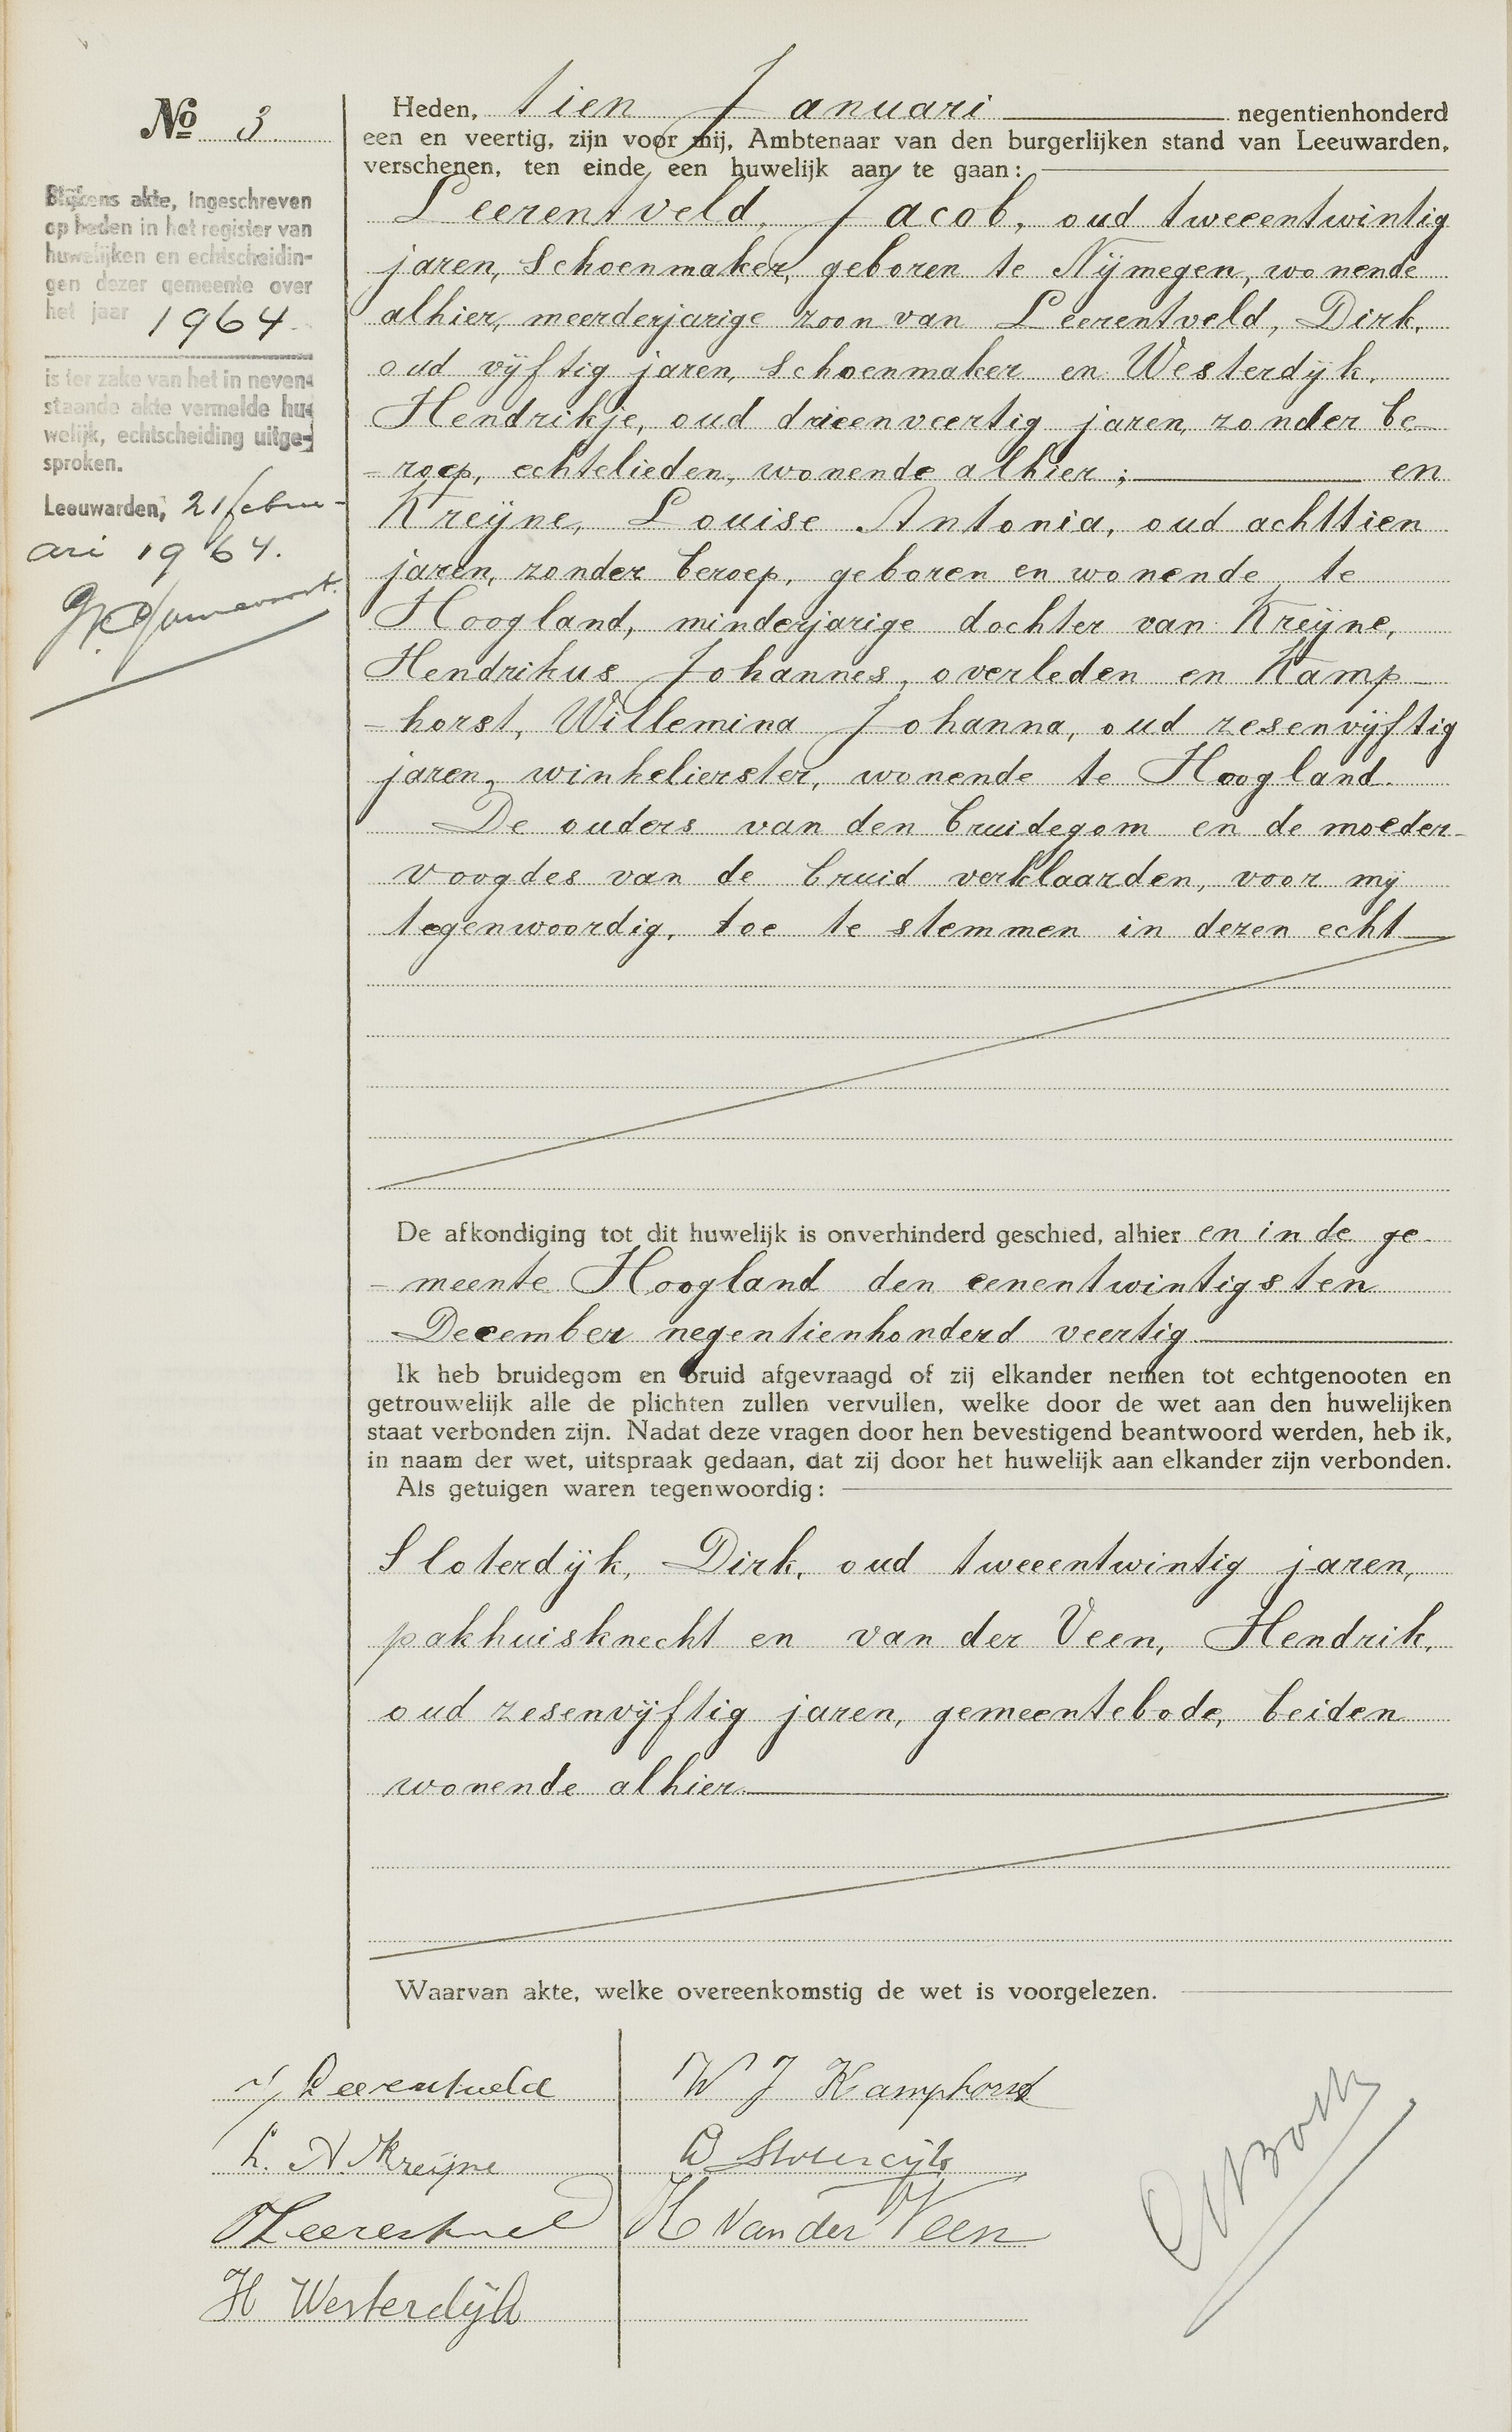 No 3
Blijkens akte, ingeschreven
op heden in het register van
huwelijken en echtscheidin-
gen dezer gemeente over
het jaar 1964.
is ter zake van het in neven-
staande akte vermelde hu-
welijk, echtscheiding uitge-
sproken.
Leeuwarden, 21 febru-
ari 1964.
Heden, tien Januari negentienhonderd
een en veertig, zijn voor mij, Ambtenaar van den burgerlijken stand van Leeuwarden,
verschenen, ten einde een huwelijk aan te gaan:
Leerentveld, Jacob, oud tweeentwintig
jaren, schoenmaker, geboren te Nijmegen, wonende
alhier, meerderjarige zoon van Leerentveld, Dirk,
oud vijftig jaren, schoenmaker en Westerdijk,
Hendrikje, oud drieenveertig jaren, zonder be-
-roep, echtelieden, wonende alhier; en
Kreijne, Louise Antonia, oud achttien
jaren, zonder beroep, geboren en wonende te
Hoogland, minderjarige dochter van Kreijne,
Hendrikus Johannes, overleden en Kamp-
-horst, Willemina Johanna, oud zesenvijftig
jaren, winkelierster, wonende te Hoogland.
De ouders van den bruidegom en de moeder-
voogdes van de bruid verklaarden, voor mij
tegenwoordig, toe te stemmen in dezen echt
De afkondiging tot dit huwelijk is onverhinderd geschied, alhier en in de ge-
-meente Hoogland den eenentwintigsten
December negentienhonderd veertig
Ik heb bruidegom en bruid afgevraagd of zij elkander nemen tot echtgenooten en
getrouwelijk alle de plichten zullen vervullen, welke door de wet aan den huwelijken
staat verbonden zijn. Nadat deze vragen door hen bevestigend beantwoord werden, heb ik,
in naam der wet, uitspraak gedaan, dat zij door het huwelijk aan elkander zijn verbonden.
Als getuigen waren tegenwoordig:
Sloterdijk, Dirk, oud tweeentwintig jaren,
pakhuisknecht en van der Veen, Hendrik,
oud zesenvijftig jaren, gemeentebode, beiden
wonende alhier.
Waarvan akte, welke overeenkomstig de wet is voorgelezen.
J Leerentveld
L. A. Kreijne
D Leerentveld
H Westerdijk
W J Kamphorst
D Sloterdijk
H van der Veen